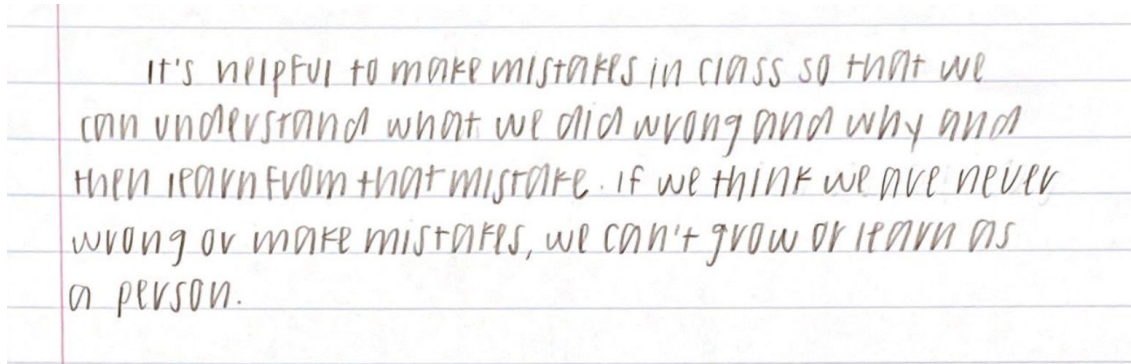 It's helpful to make mistakes in class so that we
can understand what we did wrong and why and
then learn from that mistake. If we think we are never
wrong or make mistakes, we can't grow or learn as
a person.